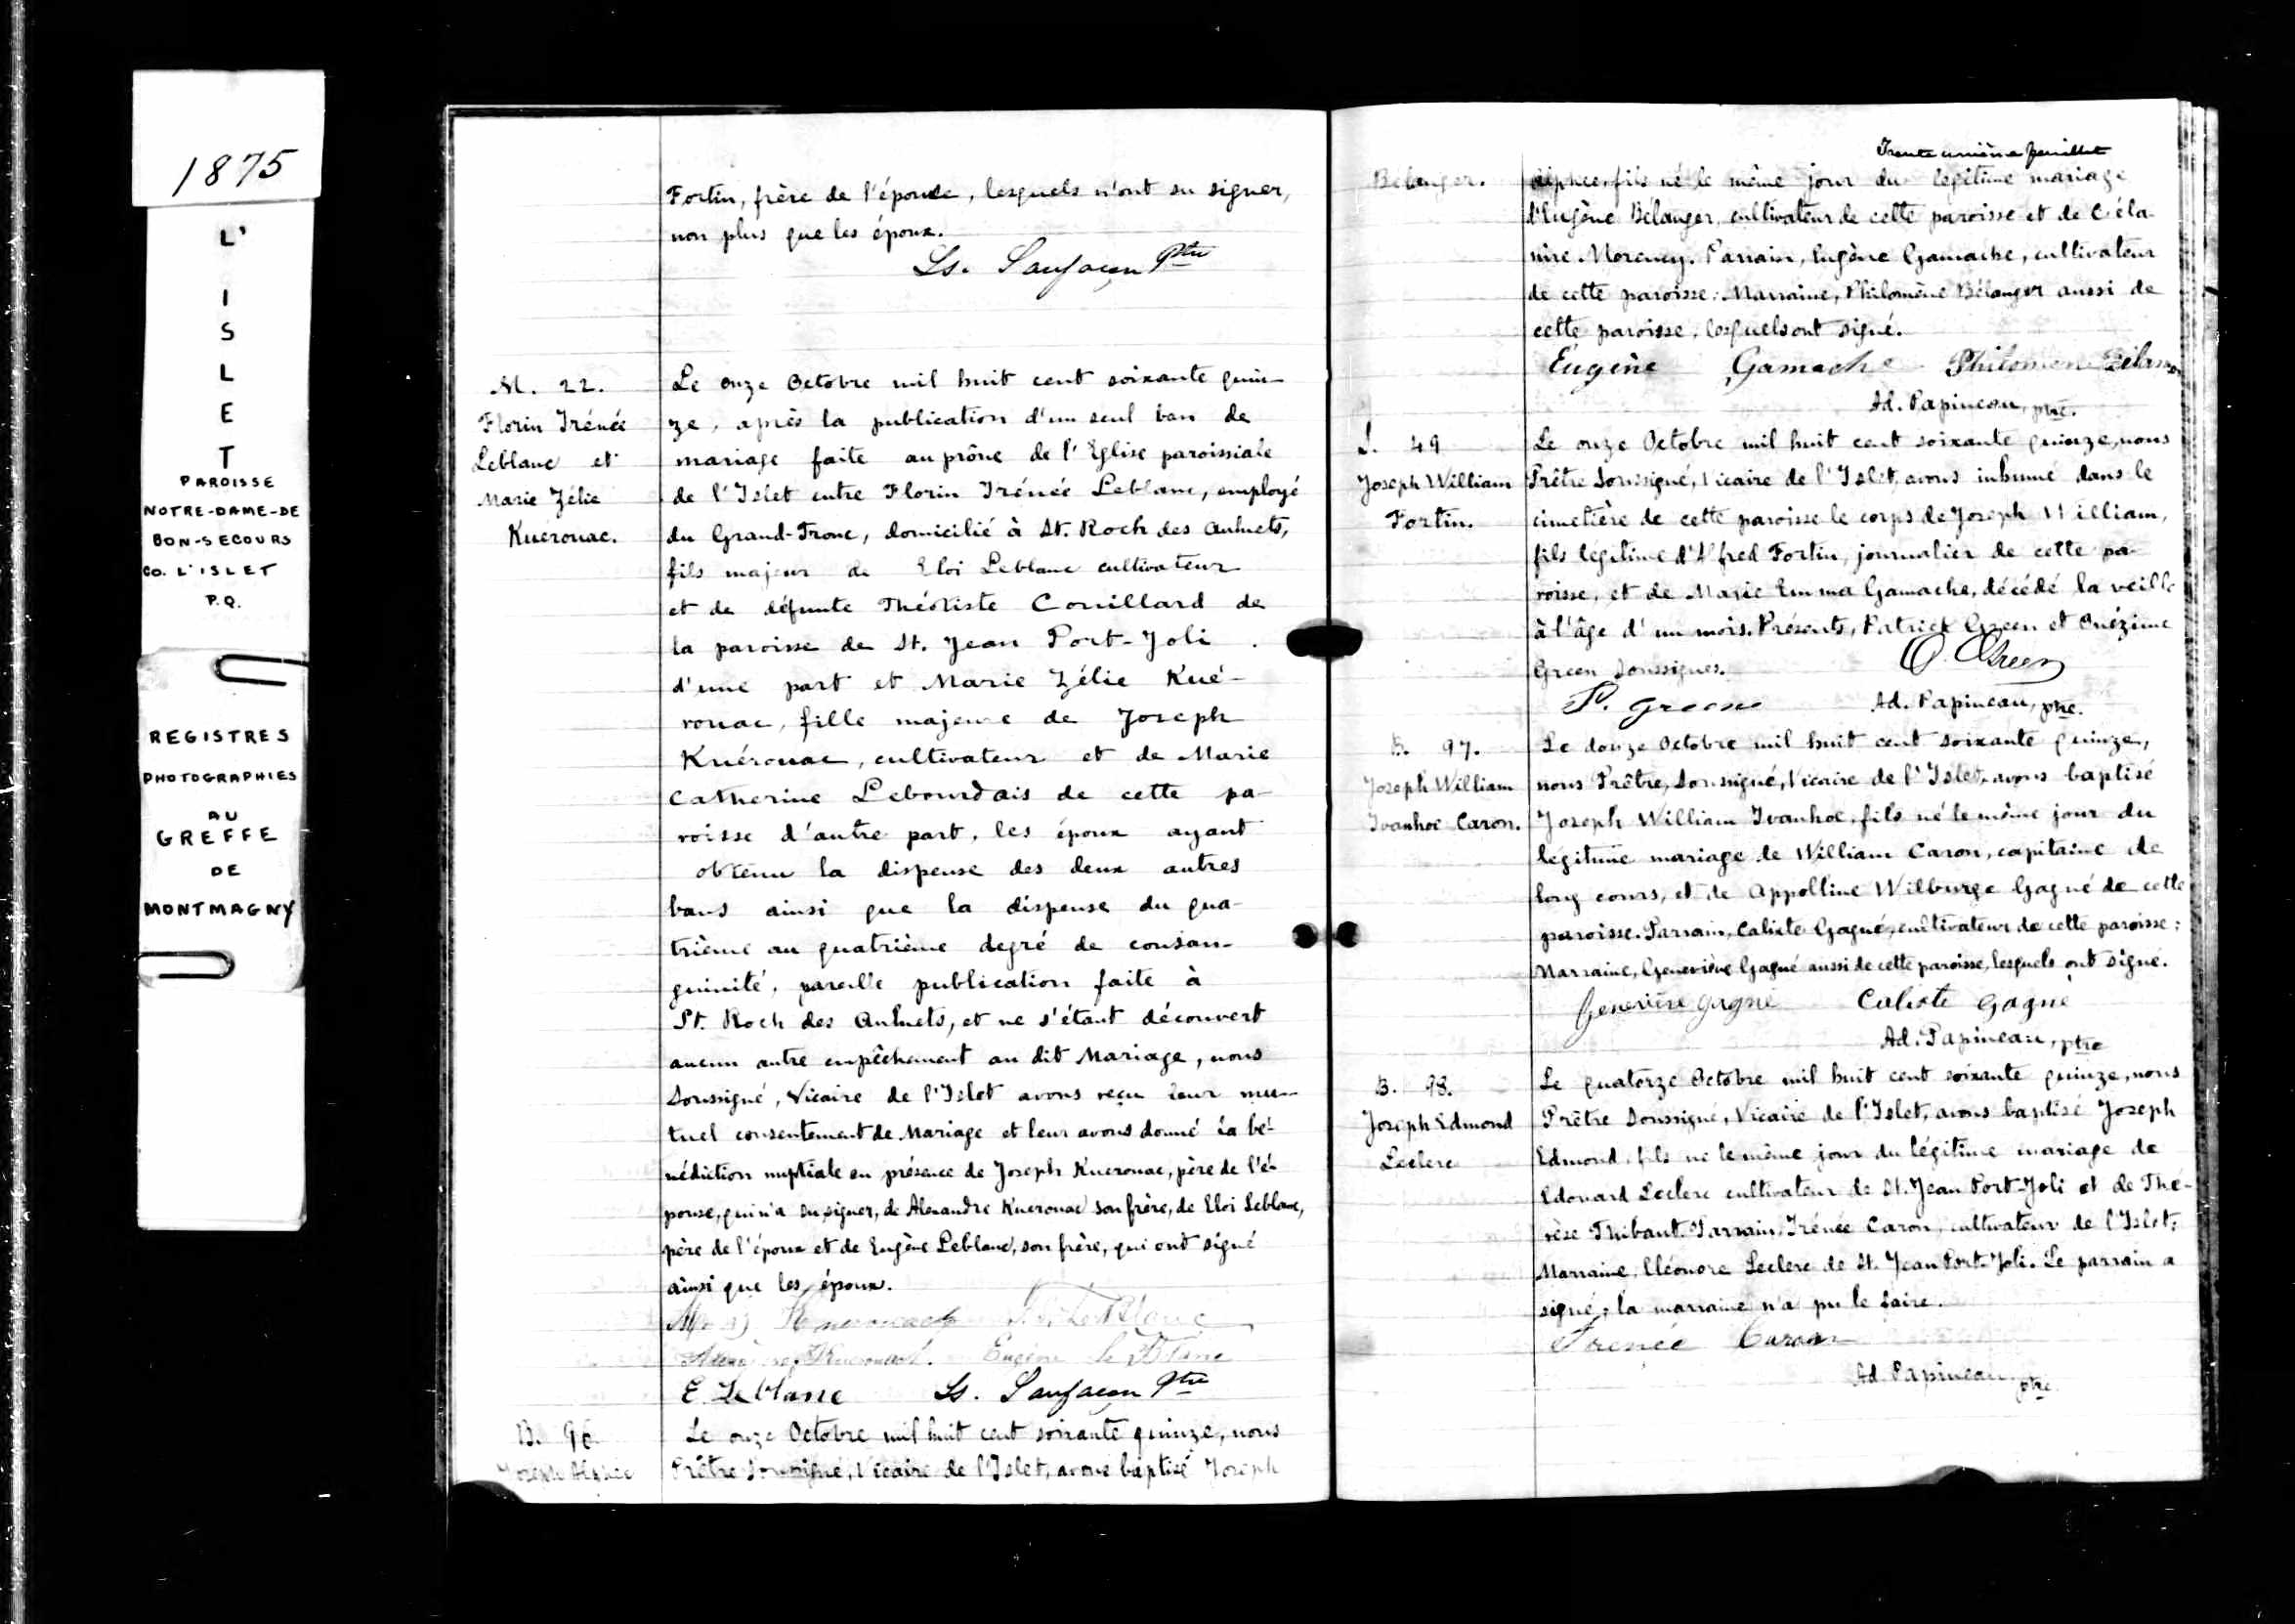 1875
L'
I
S
L
E
T
PAROISSE
NOTRE-DAME-DE
BON-SECOURS
CO. L'ISLET
P.Q.
REGISTRES
PHOTOGRAPHIES
AU
GREFFE
DE
MONTMAGNY
Fortin, frère de l'épouse, lesquels n'ont su signer,
non plus que les époux.
Ls. Sanfaçon Ptre
M. 22.
Florin Irénée
Leblanc et
Marie Zélie
Kuérouac.
Le onze Octobre mil huit cent soixante quin-
ze, après la publication d'un seul ban de
mariage faite au prône de l'Eglise paroissiale
de l'Islet entre Florin Irénée Leblanc, employé
du Grand-Tronc, domicilié à St. Roch des Aulnets,
fils majeur de Eloi Leblanc cultivateur
et de défunte Théotiste Couillard de
la paroisse de St. Jean Port-Joli
d'une part et Marie Zélie Kué-
rouac, fille majeure de Joseph
Kuérouac, cultivateur et de Marie
Catherine Lebourdais de cette pa-
roisse d'autre part, les époux ayant
obtenu la dispense des deux autres
bans ainsi que la dispense du qua-
trième au quatrième degré de consan-
guinité, pareille publication faite à
St. Roch des Aulnets, et ne s'étant découvert
aucun autre empêchement au dit Mariage, nous
Soussigné, Vicaire de l'Islet avons reçu leur mu-
tuel consentement de Mariage et leur avons donné la bé-
nédiction nuptiale en présence de Joseph Kuerouac, père de l'é-
pouse, qui n'a su signer, de Alexandre Kuerouac son frère, de Eloi Leblanc,
père de l'époux et de Eugène Leblanc, son frère, qui ont signé
ainsi que les époux.
Kuerouack LeBlanc
Kuerouack. Eugène Le Blanc
E. Leblanc Ls. Sanfaçon Ptre
B. 96
Joseph Alphée
Le onze Octobre mil huit cent soixante quinze, nous
Prêtre Soussigné, Vicaire de l'Islet, avons baptisé Joseph
Trente unième feuillet
Bélanger.
Alphée, fils né le même jour du légitime mariage
d'Eugène Bélanger, cultivateur de cette paroisse et de Céla-
nire Morency. Parrain, Eugène Gamache, cultivateur
de cette paroisse; Marraine, Philomène Bélanger aussi de
cette paroisse, lesquels ont signé.
Eugène Gamache Philomène Bélanger
Ad. Papineau, ptre.
S. 49
Joseph William
Fortin.
Le onze Octobre mil huit cent soixante quinze, nous
Prêtre Soussigné, Vicaire de l'Islet, avons inhumé dans le
cimetière de cette paroisse le corps de Joseph William,
fils legitime d'Alfred Fortin, journalier de cette pa-
roisse, et de Marie Emma Gamache, décédé la veille
à l'âge d'un mois. Présents, Patrick Green et Onézime
Green Soussignés.
O. Green
P. Green Ad. Papineau, ptre.
B. 97.
Joseph William
Ivanhoe Caron.
Le douze Octobre mil huit cent soixante quinze,
nous Prêtre, Soussigné, Vicaire de l'Islet, avons baptisé
Joseph William Ivanhoe, fils né le même jour du
légitime mariage de William Caron, capitaine de
long cours, et de Appolline Wilburge Gagné de cette
paroisse. Parrain, Calixte Gagné, cultivateur de cette paroisse;
Marraine, Geneviève Gagné aussi de cette paroisse, lesquels ont signé.
Geneviève Gagné Calixte Gagné
Ad. Papineau, ptre
B. 98.
Joseph Edmond
Leclerc
Le quatorze Octobre mil huit cent soixante quinze, nous
Prêtre Soussigné, Vicaire de l'Islet, avons baptisé Joseph
Edmond, fils né le même jour du légitime mariage de
Edouard Leclerc cultivateur de St. Jean Port-Joli et de Thé-
rèse Thibaut. Parrain, Irénée Caron, cultivateur de l'Islet;
Marraine, Eléonore Leclerc de St. Jean Port-Joli. Le parrain a
signé, la marraine n'a pu le faire.
Irenée Caron
Ad. Papineau ptre.